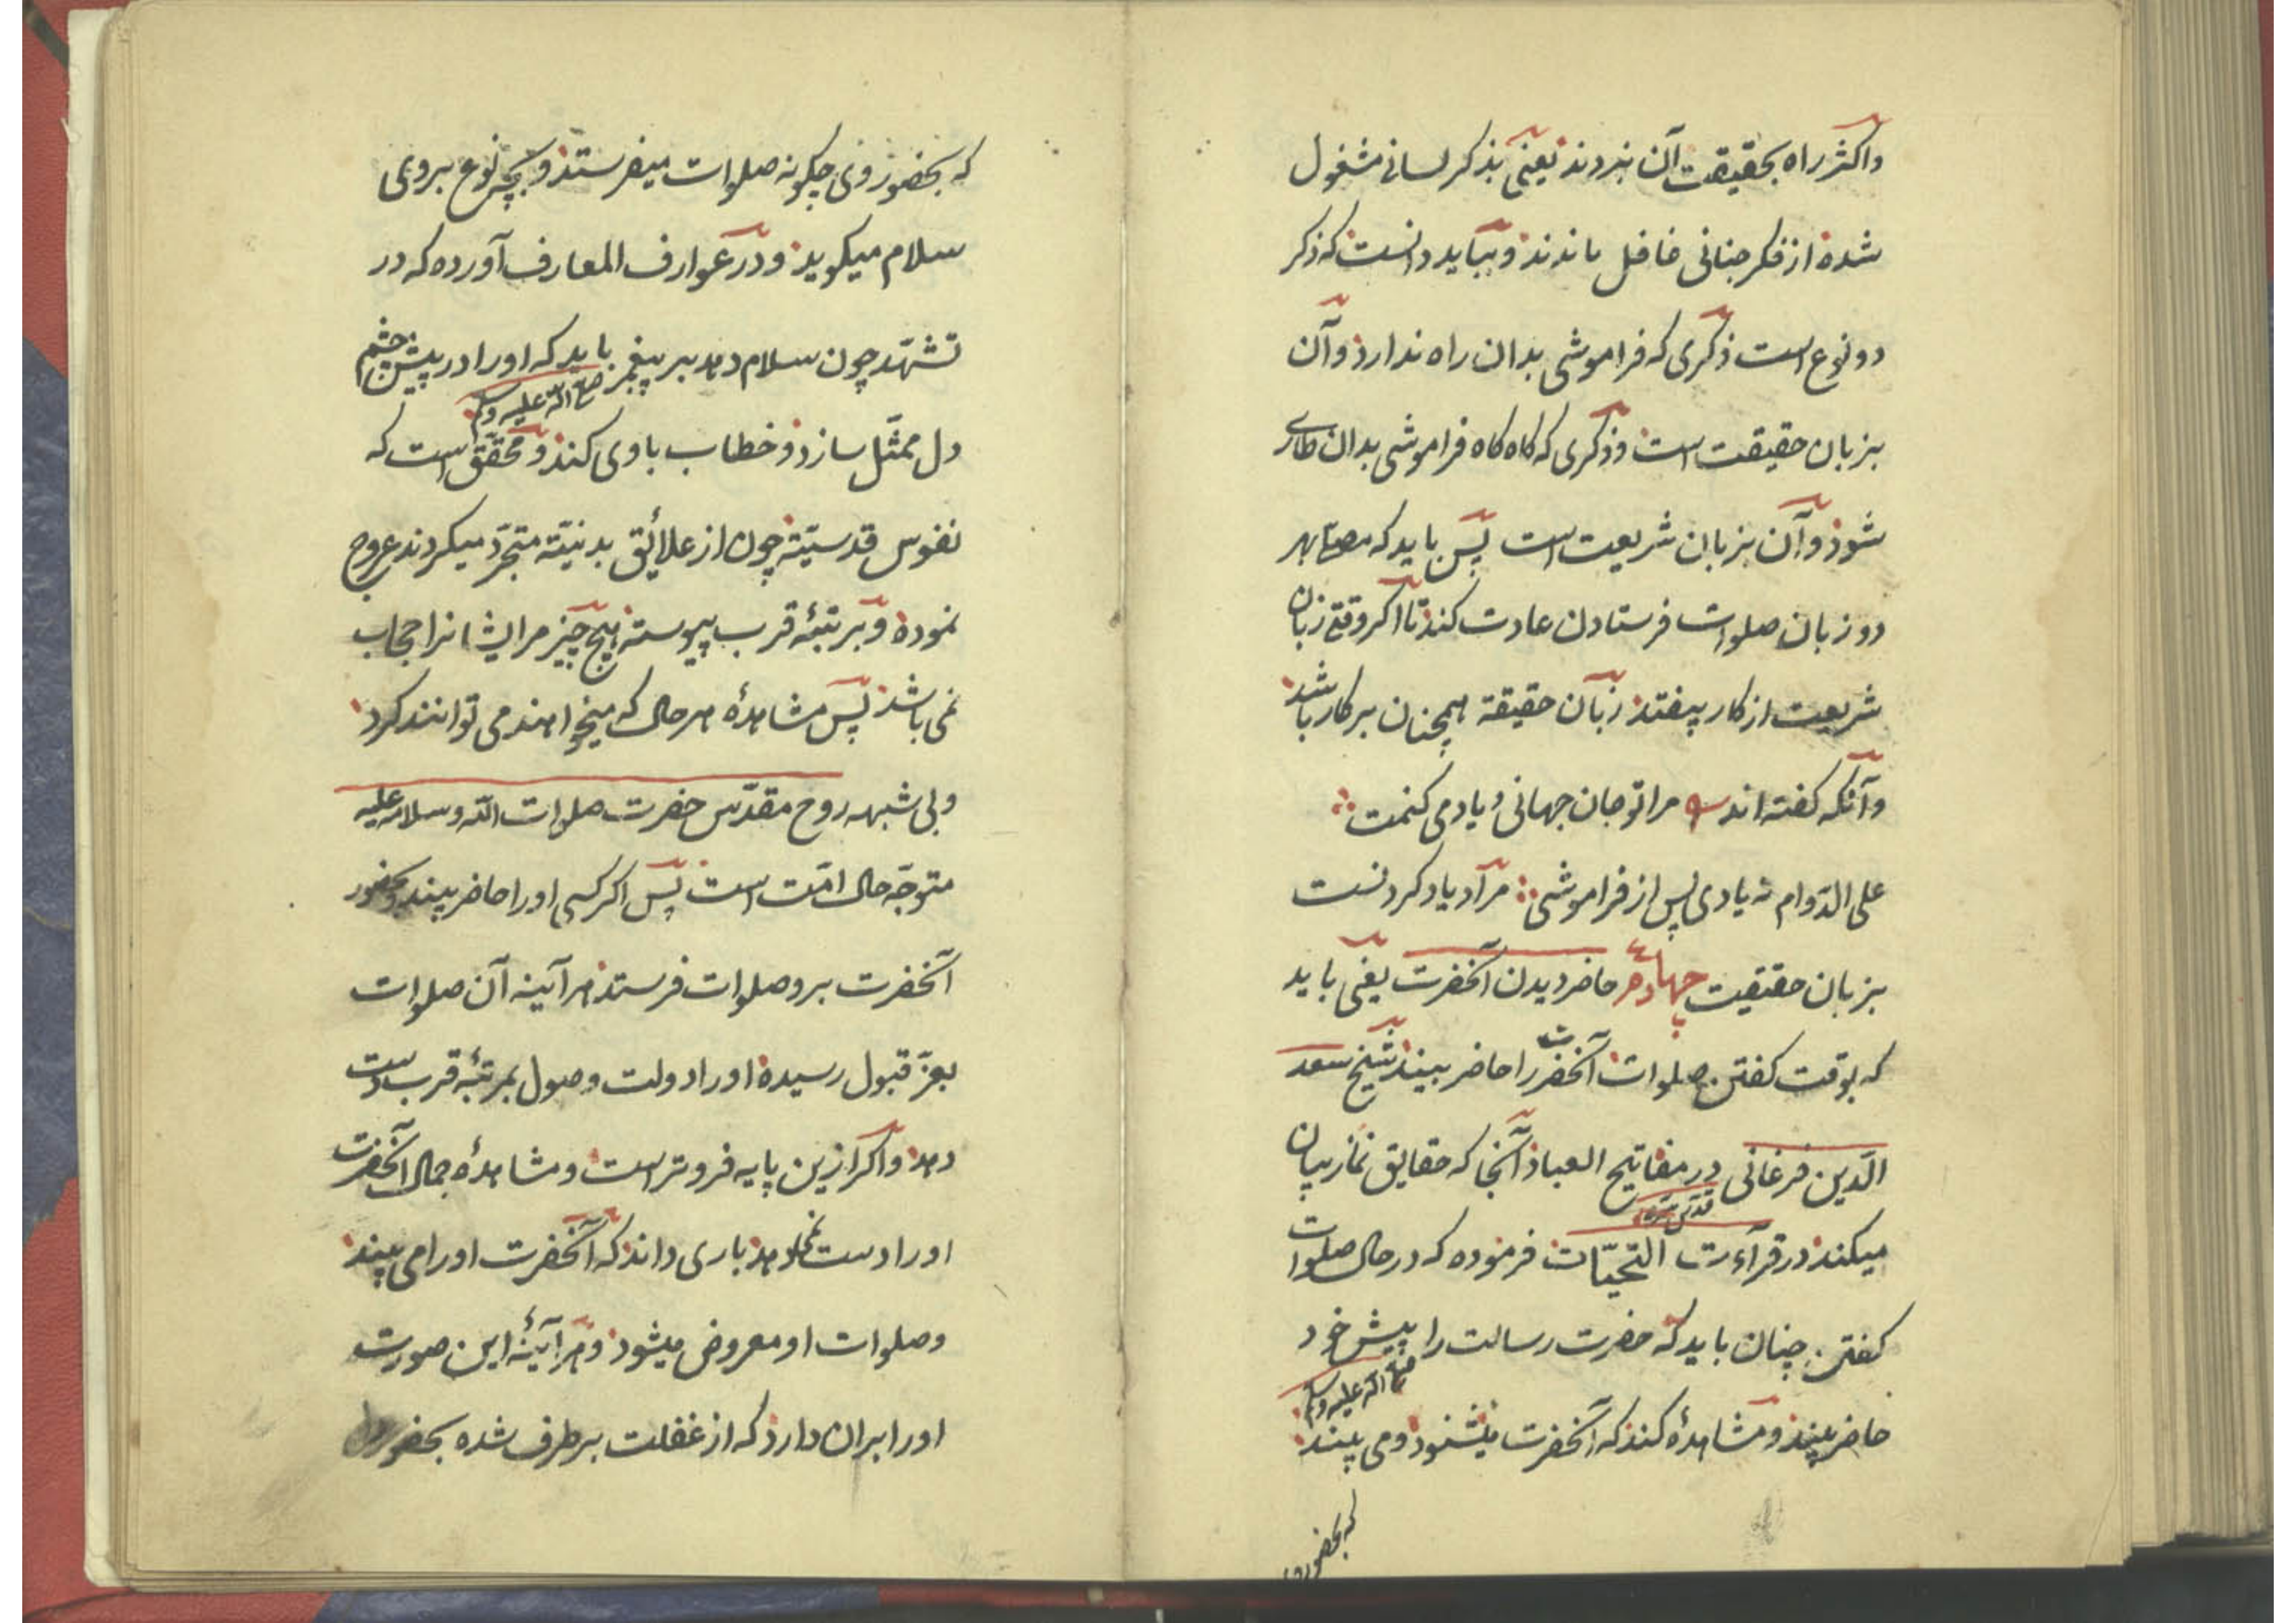 واکثر راه بحقیقت آن نبردند یعنی بذکر لسانی مشغول
شده از فکر جنانی غافل ماندند و بباید دانست که ذکر
دو نوع است ذکری که فراموشی بدان راه ندارد و آن
بزبان حقیقت است و ذکری که کاه کاه فراموشی بدان طاری
شود و آن بزبان شریعت است پس باید که مصلی بهر
دو زبان صلوات فرستادن عادت کند تا اکر وقتی زبان
شریعت از کار بیفتد زبان حقیقة همچنان بر کار باشد
وآنکه کفته اند مرا تو جان جهانی و یاد می کنمت
علی الدّوام نه یادی پس از فراموشی مراد یاد کردنست
بزبان حقیقت چهارم حاضر دیدن آنحضرت یعنی باید
که بوقت کفتن صلوات آنحضرت را حاضر بیند شیخ سعد
الدّین فرغانی در مفاتیح العباد آنجا که حقایق نماز بیان
قدّس سرّه
میکند در قرآءت التحیّات فرموده که در حال صلوات
کفتن چنان باید که حضرت رسالت را پیش خود
صلی الله علیه وسلم
حاضر بیند و مشاهدۀ کند که آنحضرت میشنود و می بیند
که بحضور وی
که بحضور وی چکونه صلوات میفرستد و بچه نوع بروی
سلام میکوید و در عوارف المعارف آورده که در
تشهّد چون سلام دهد بر پیغمبر باید که او را در پیش چشم
صلی الله علیه وسلم
دل ممثّل سازد و خطاب با وی کند و محقّق است که
نفوس قدسیّه چون از علائق بدنیّه متجرّد میکردند عروج
نموده و بمرتبۀ قرب پیوسته هیچ چیز مر ایشانرا حجاب
نمی باشد پس مشاهدۀ هر حال که میخواهند می توانند کرد
وبی شبهه روح مقدّس حضرت صلوات الله وسلامه علیه
متوجّه حال امّت است پس اکر کسی او را حاضر بیند و بحضور
آنحضرت برو صلوات فرستد هر آینه آن صلوات
بعزّ قبول رسیده او را دولت وصول بمرتبۀ قرب دست
دهد و اکر ازین پایه فروتر است و مشاهدۀ جمال آنحضرت
او را دست نمیدهد باری داند که آنحضرت او را می بیند
وصلوات او معروض میشود و هر آینۀ این صورت
او را بران دارد که از غفلت بر طرف شده بحضور دل